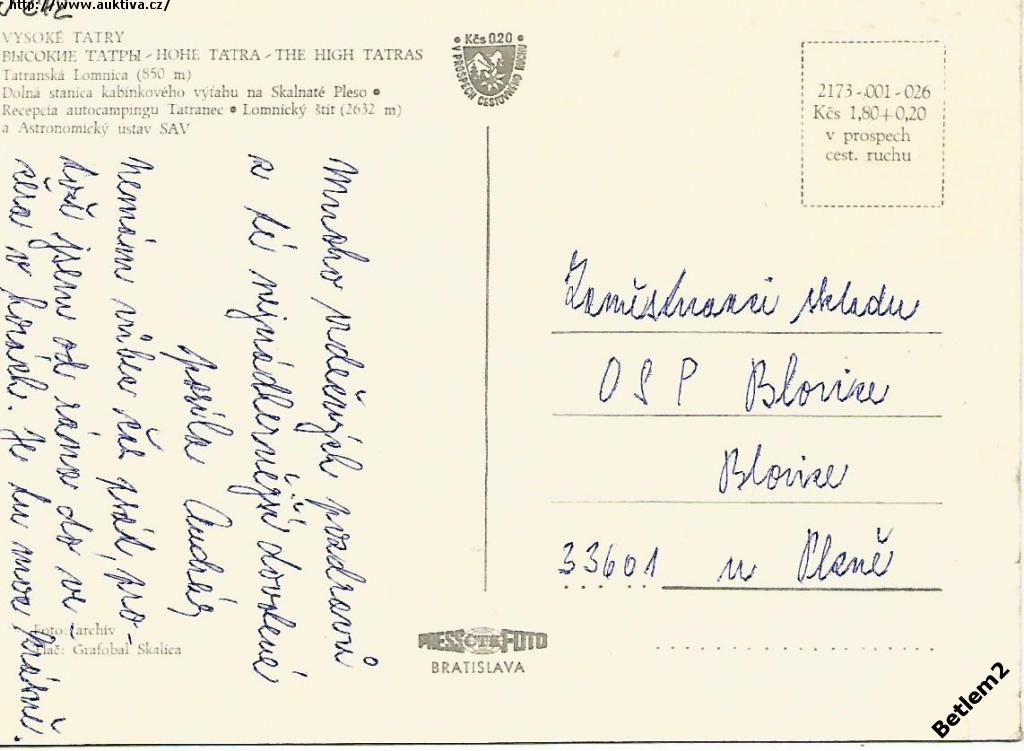 http://www.auktiva.cz/
VYSOKÉ TATRY
ВЫСОКИЕ ТАТРЫ - HOHE TATRA - THE HIGH TATRAS
Tatranská Lomnica (850 m)
Dolná stanica kabínkového výťahu na Skalnaté Pleso •
Recepcia autocampingu Tatranec • Lomnický štít (2632 m)
a Astronomický ústav SAV
• Kčs 0.20 •
V PROSPECH CESTOVNÉHO RUCHU
2173-001-026
Kčs 1,80+0,20
v prospech
cest. ruchu
Mnoho srdečných pozdravů
z té nejnádhernější dovolené
posílá
Nemám vůbec čas psát, pro-
tož jsem od rána do ve-
čera v horách. Je tu moc krásně.
Zaměstnanci skladu
OSP Blovice
Blovice
33601 u Plzně
Foto: archív
Tlač: Grafobal Skalica
PRESSFOTO
BRATISLAVA
Betlem2